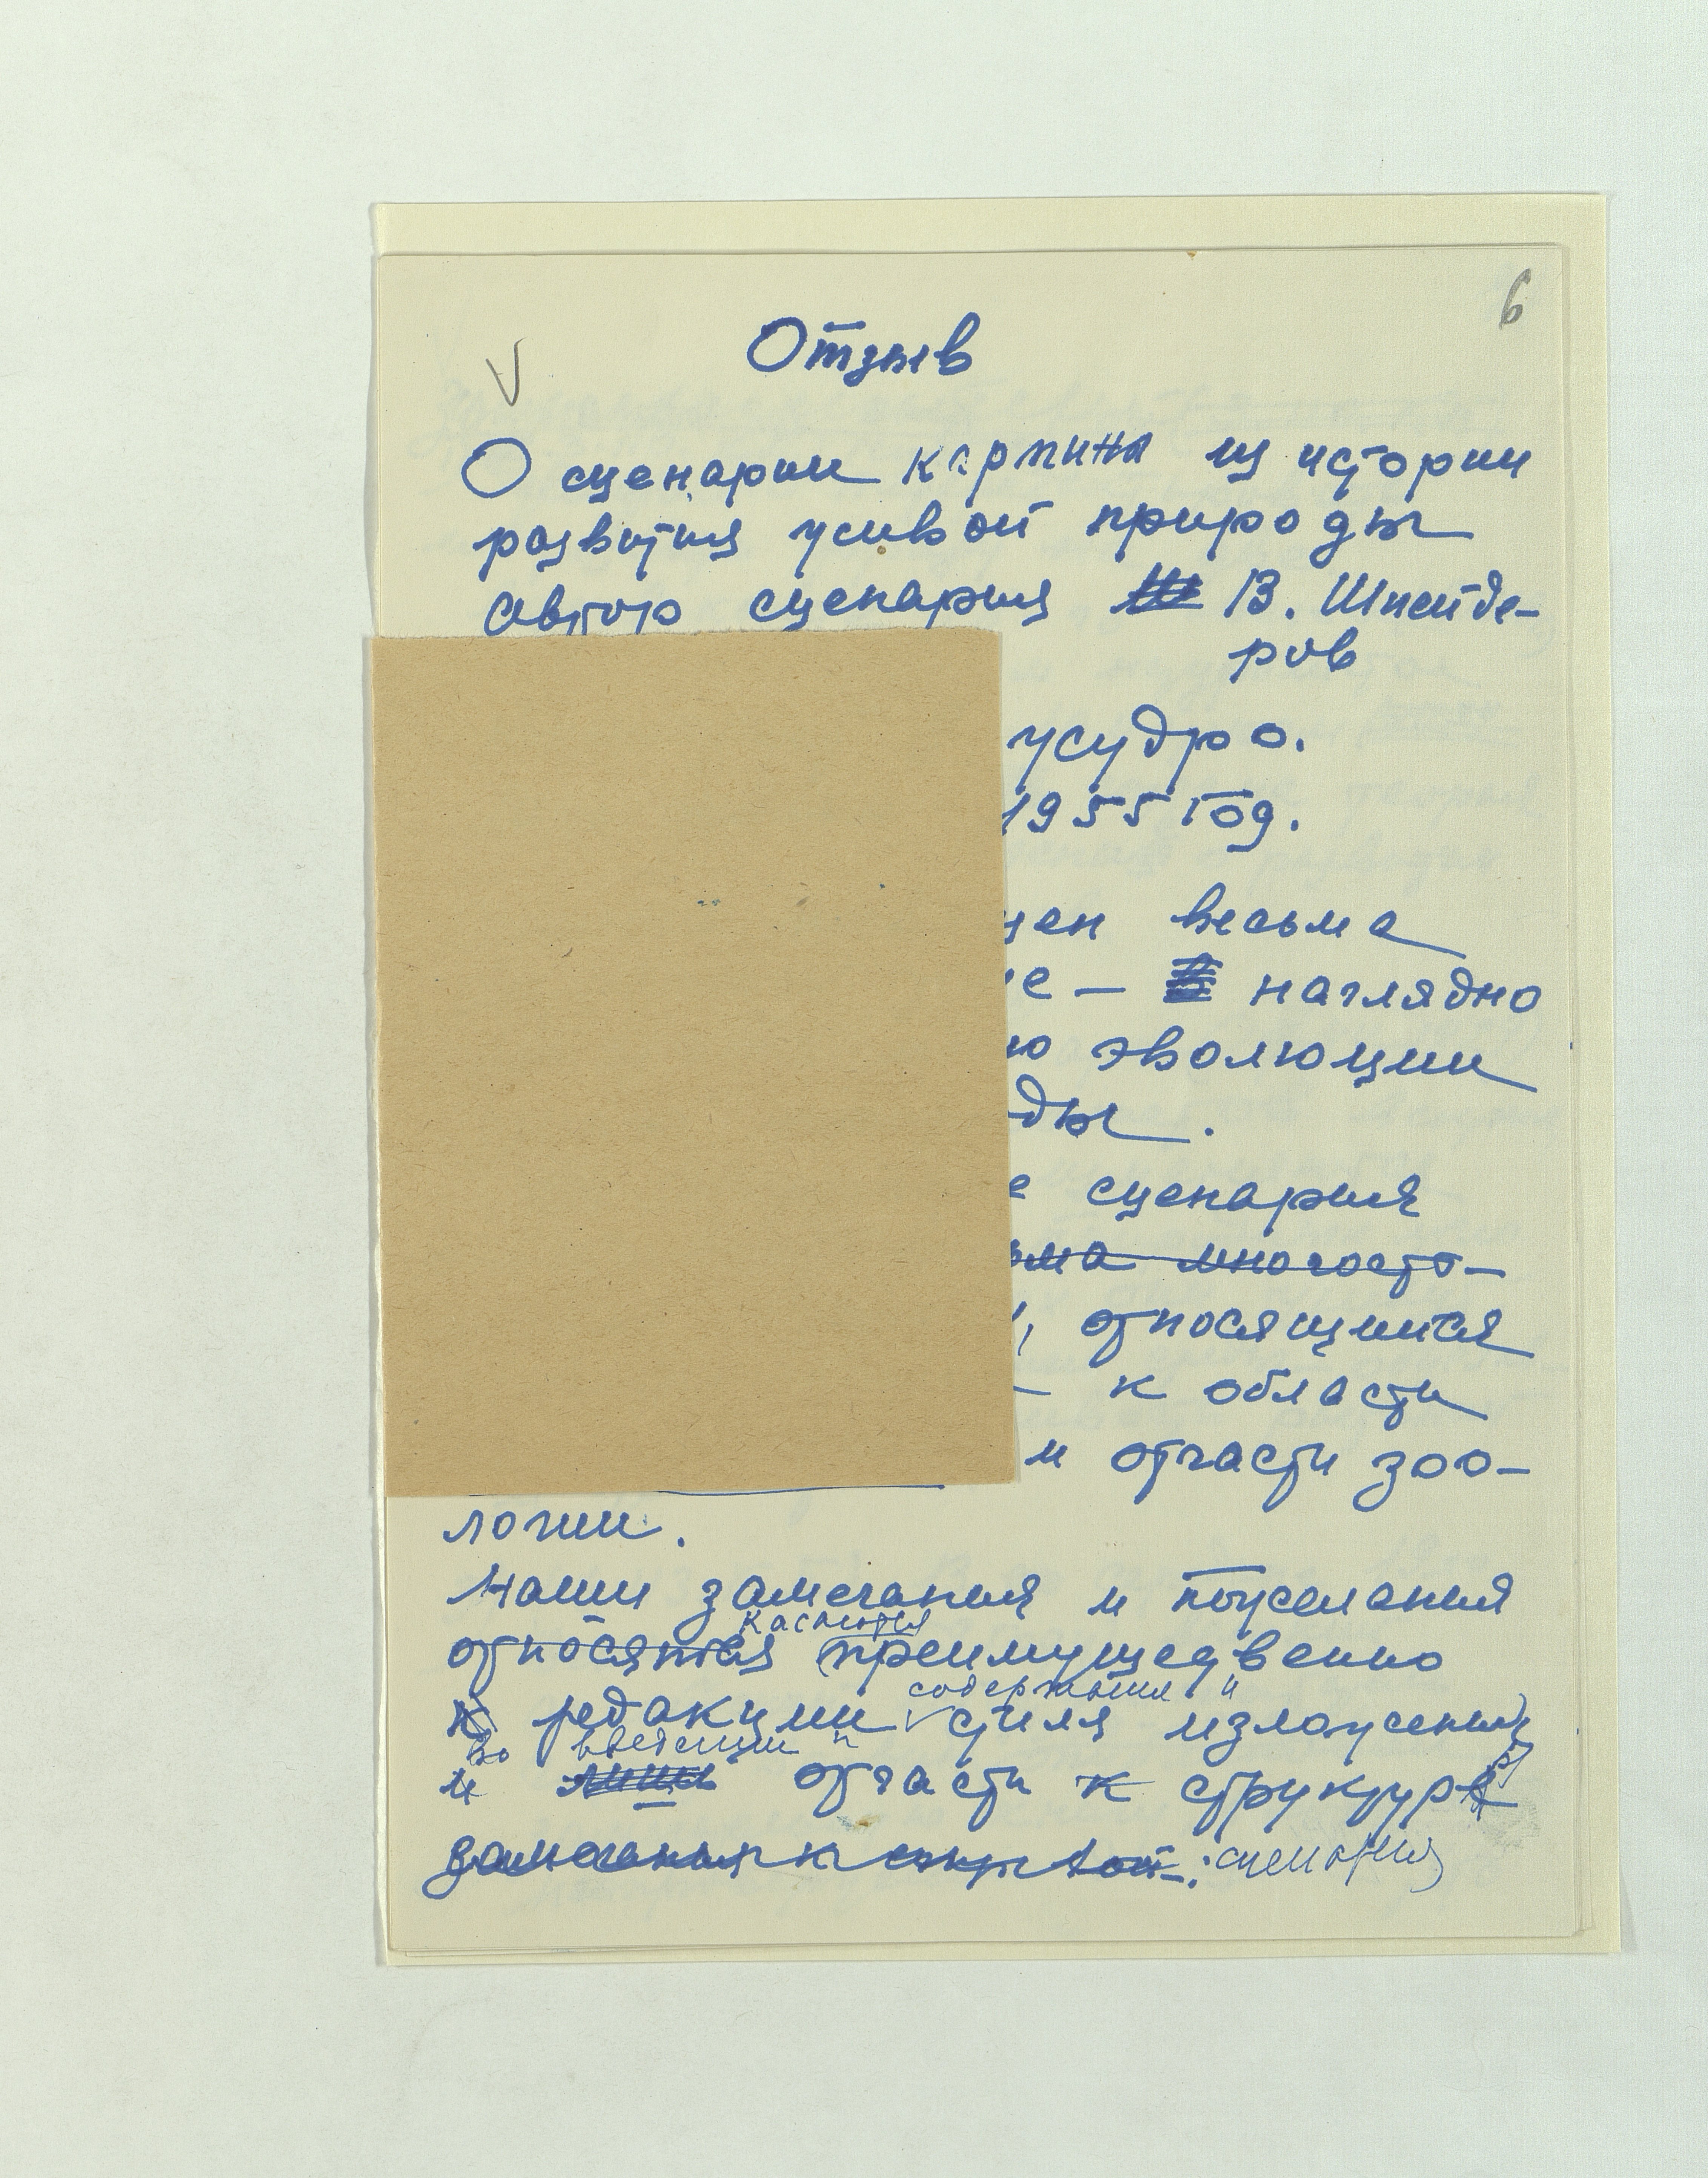 6
Отзыв
О сценарии картины из истории
развития живой природы
автор сценария В. Шнейде-
ров
1955 год.
весьма
наглядно
эволюции
сценария
относящимися
к области
и отчасти зоо-
логии.
Наши замечания и пожелания
касаются
относятся преимущественно
содержания и
к редакции стиля изложения
во введении и
и отчасти к структуре
замечания к сценария